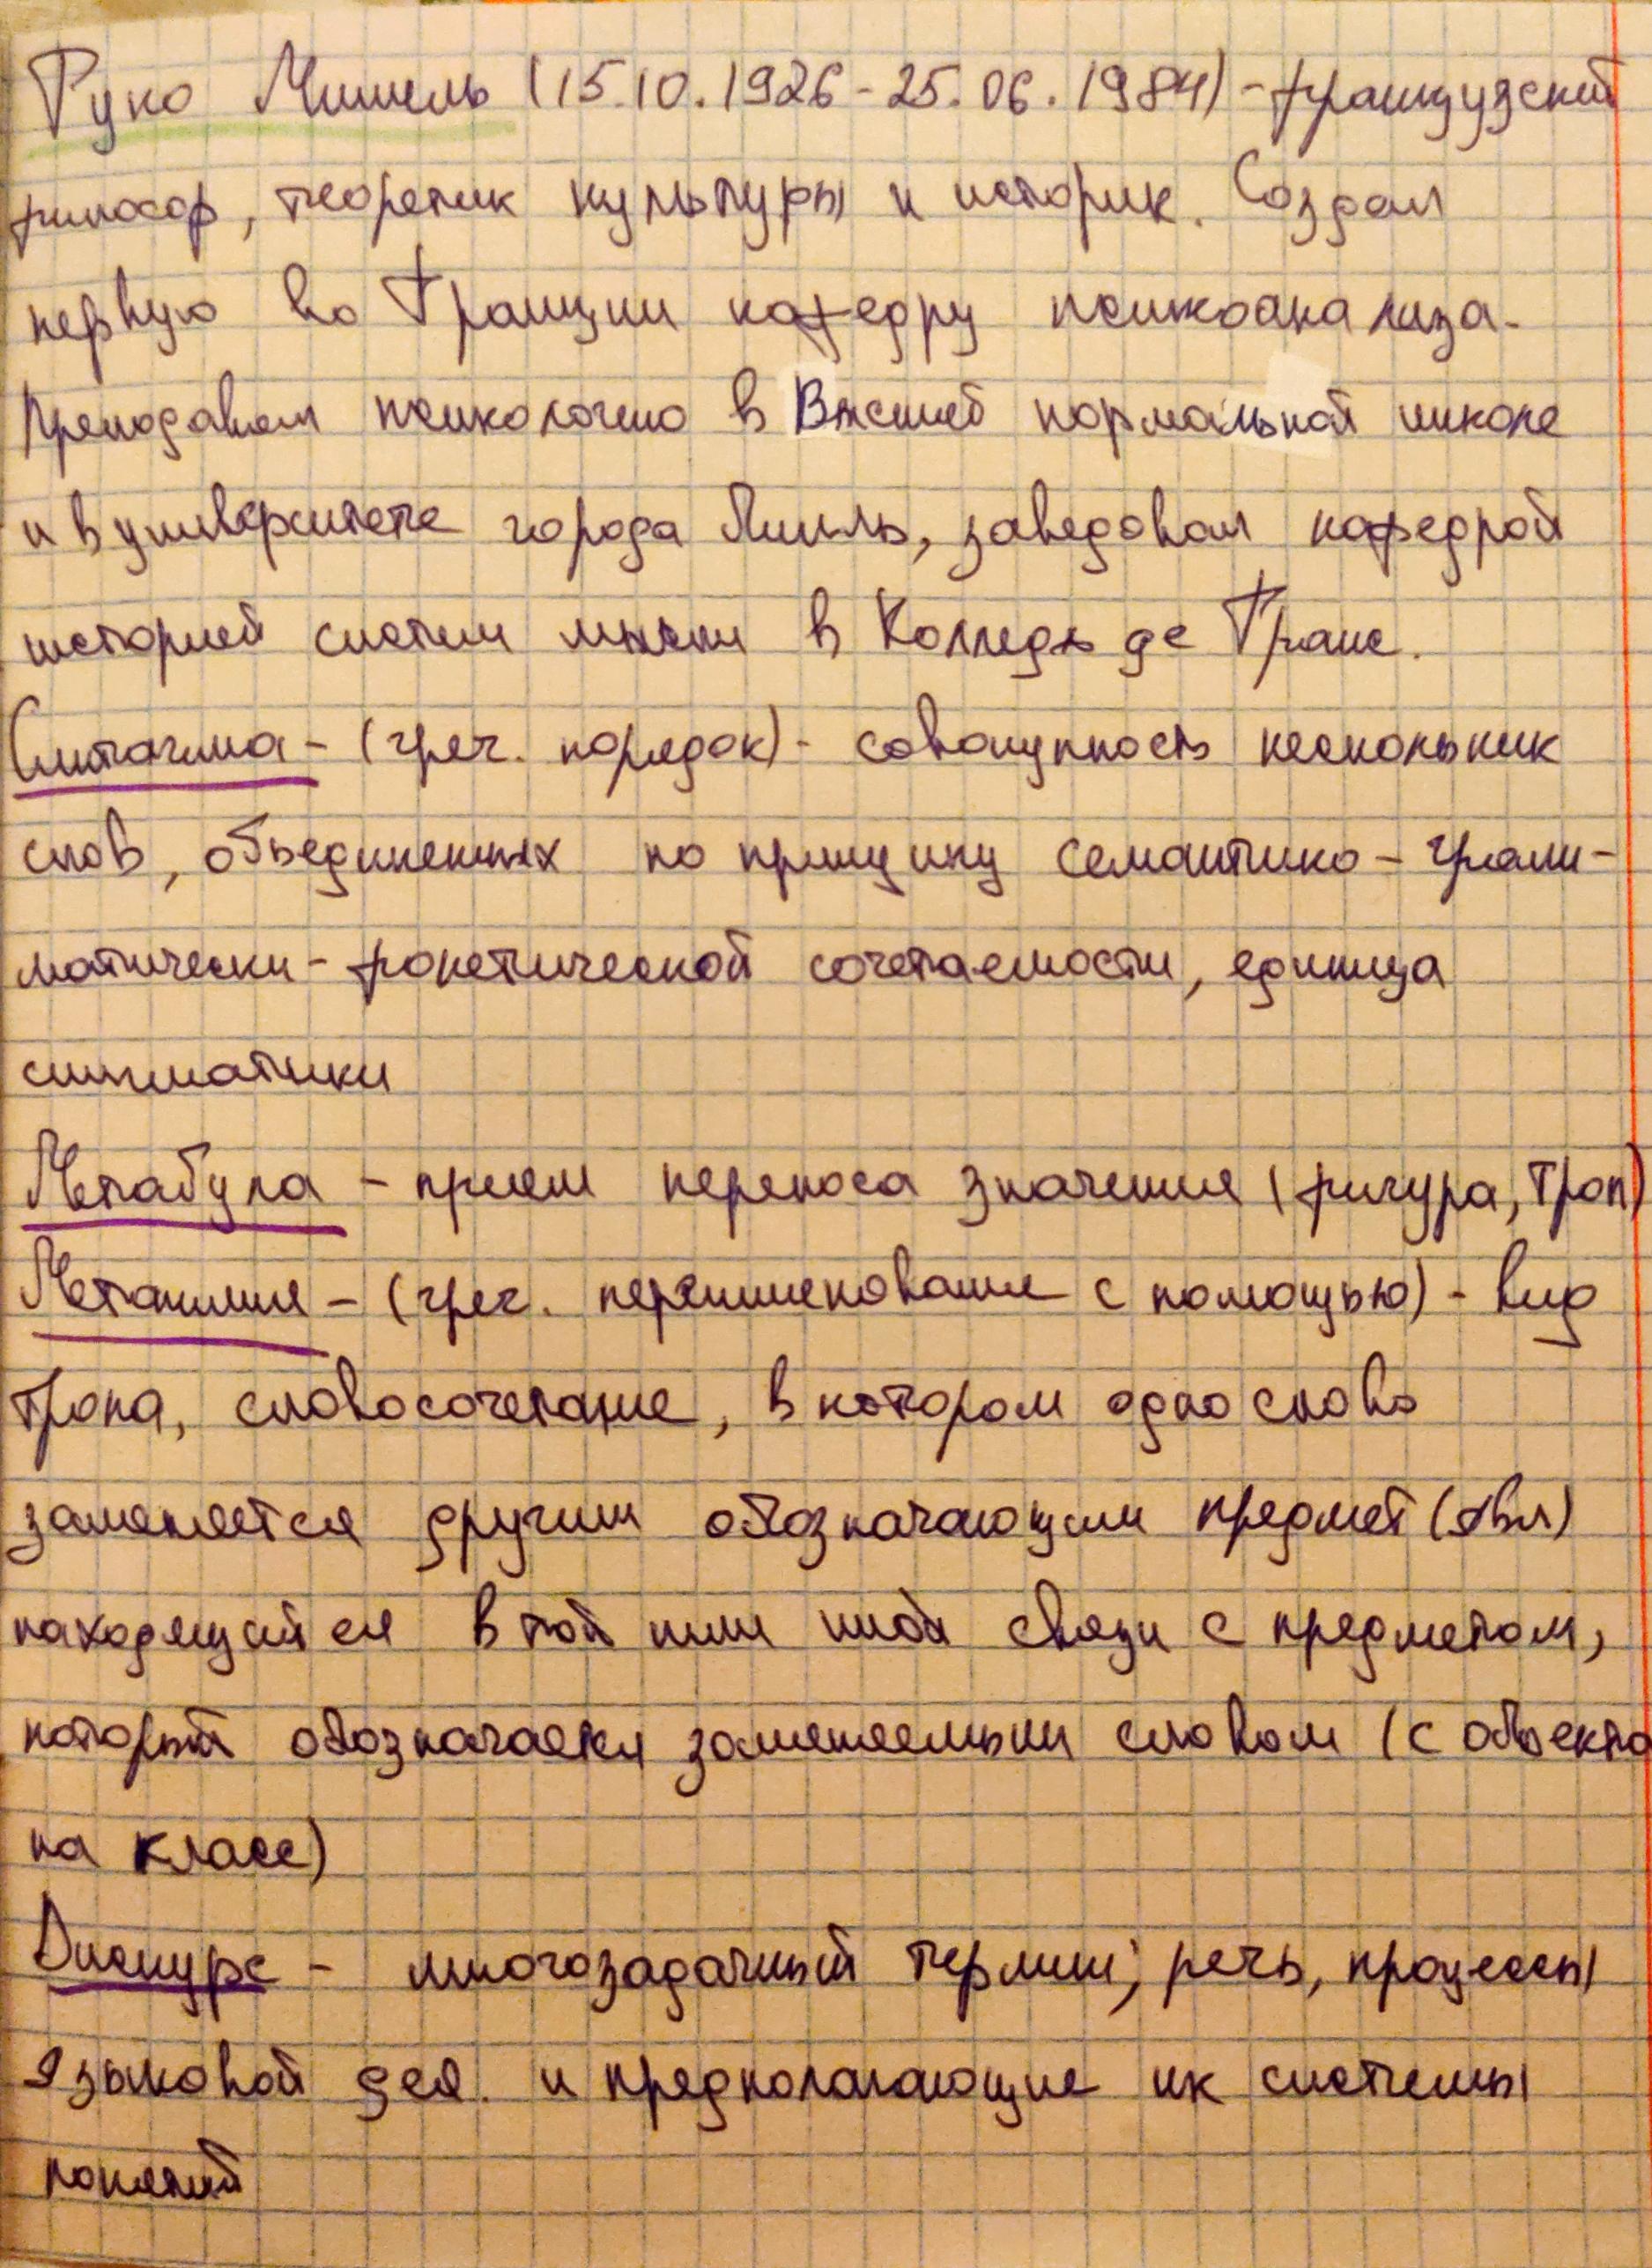 Фуко Мишель (15.10.1926 - 25.06.1984) - французский
философ, теоретик культуры и историк. Создал
первую во Франции кафедру психоанализа.
Преподавал психологию в Высшей нормальной школе
и в университете города Лилль, заведовал кафедрой
историей систем мысли в Колледж де Франс.
Синтагма - (греч. порядок) - совокупность нескольких
слов, объединенных по принципу семантико - грам-
матически - фонетической сочетаемости, единица
Метабула - прием переноса значения (фигура, троп)
Метанимия - (греч. переименование с помощью) - вид
тропа, словосочетание, в котором одно слово
заменяется другим обозначающим предмет (явл)
находящийся в той или иной связи с предметом,
который обозначается заменяемым словом (с объекта
на класс)
Дискурс - многозадачный термин; речь, процессы
языковой дея. и предполагающие их системы
понятий